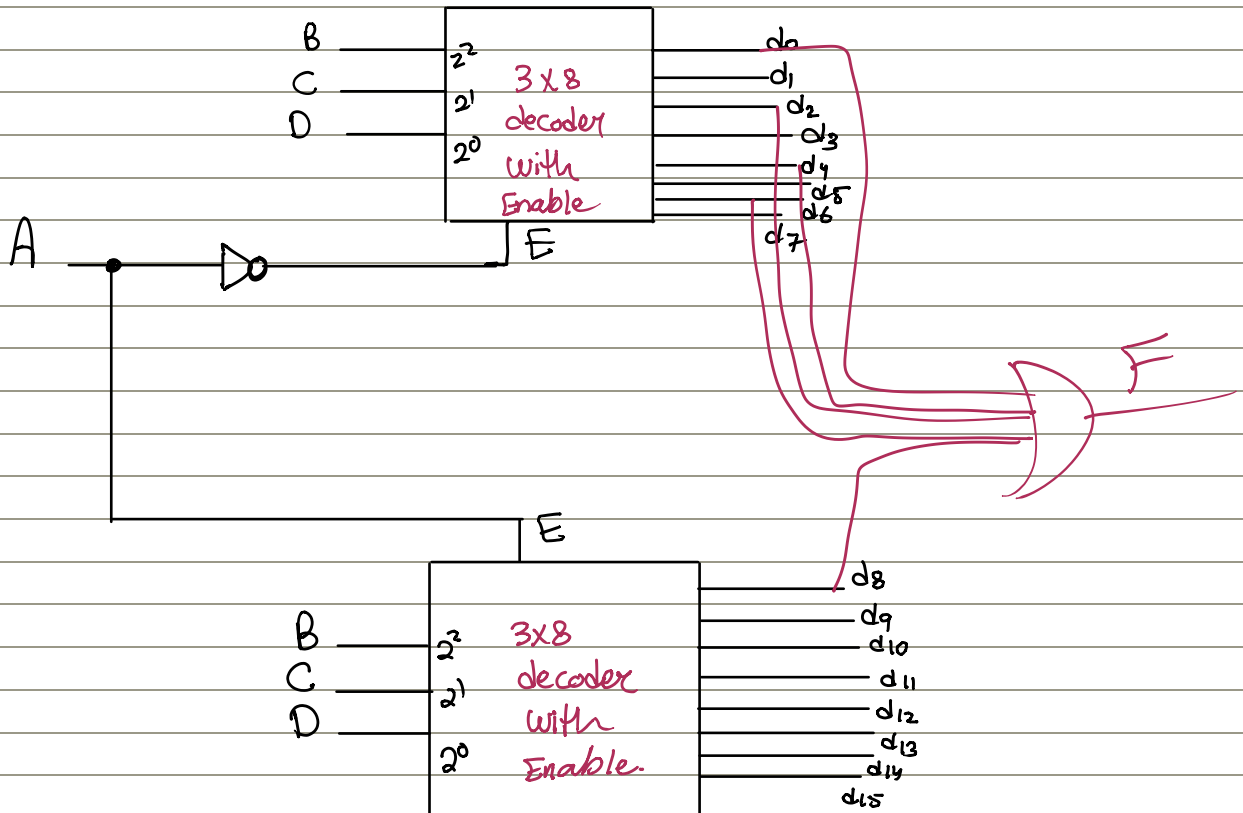 B
C
D
2²
2¹
2⁰
3x8
decoder
with
Enable
d0
d1
d2
d3
d4
d5
d6
d7
A
E
F
E
B
C
D
2²
2¹
2⁰
3x8
decoder
with
Enable.
d8
d9
d10
d11
d12
d13
d14
d15